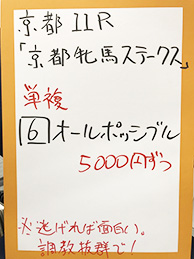 京都11R
「京都牝馬ステークス」
単複
6 オールポッシブル
5000円ずつ
※逃げれば面白い。
調教抜群で!